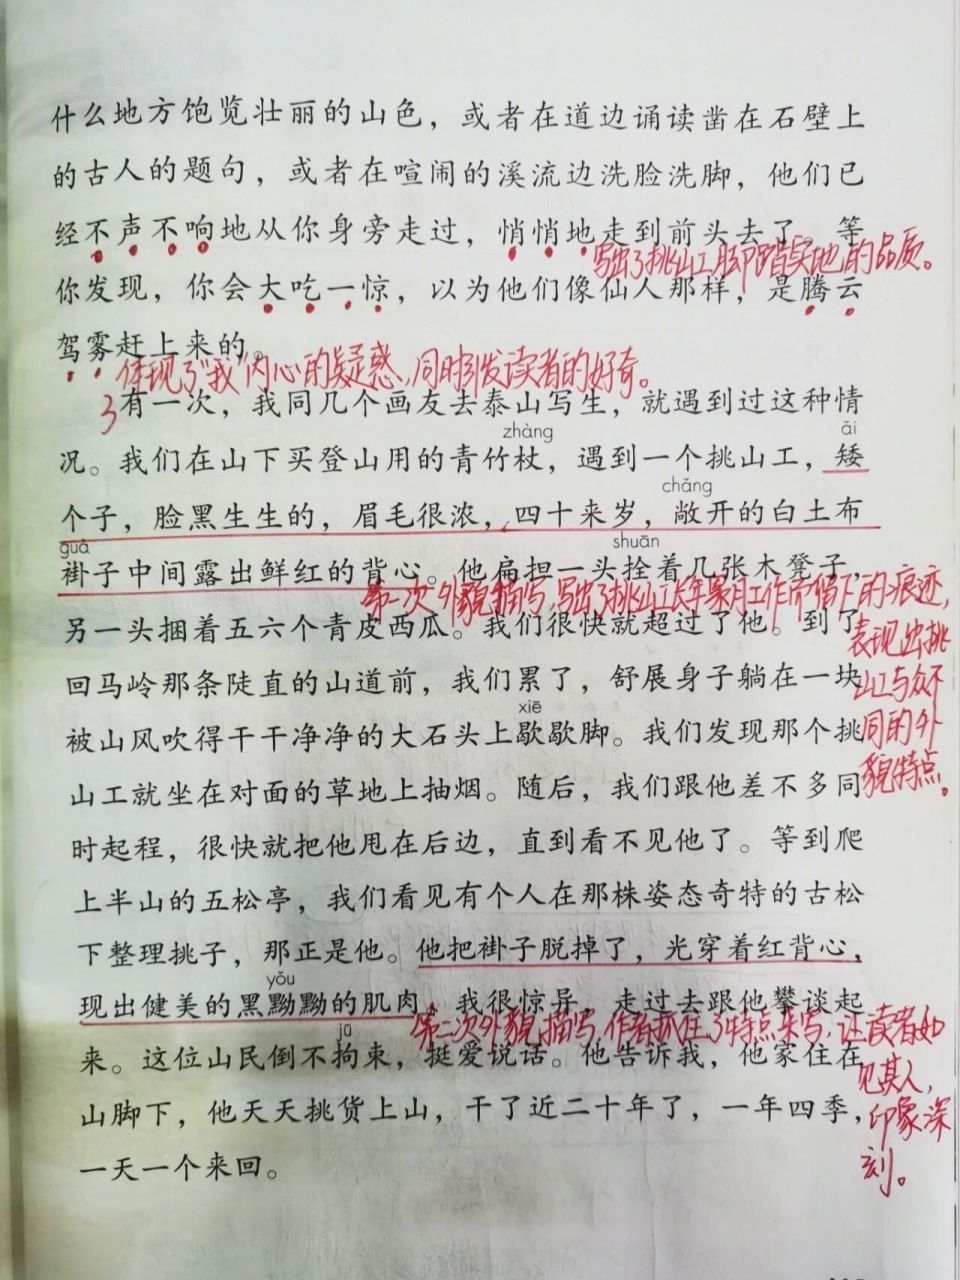 什么地方饱览壮丽的山色，或者在道边诵读凿在石壁上
的古人的题句，或者在喧闹的溪流边洗脸洗脚，他们已
经不声不响地从你身旁走过，悄悄地走到前头去了。等
写出了挑山工脚踏实地的品质。
你发现，你会大吃一惊，以为他们像仙人那样，是腾云
驾雾赶上来的。
体现了“我”内心的疑惑，同时引发读者的好奇。
3
有一次，我同几个画友去泰山写生，就遇到过这种情
zhàng
ǎi
况。我们在山下买登山用的青竹杖，遇到一个挑山工，矮
chǎng
个子，脸黑生生的，眉毛很浓，四十来岁，敞开的白土布
guà
shuān
褂子中间露出鲜红的背心。他扁担一头拴着几张木凳子，
第一次外貌描写，写出了挑山工长年累月工作而留下的痕迹，
表现出挑
山工与众不
同的外
貌特点。
另一头捆着五六个青皮西瓜。我们很快就超过了他。到了
回马岭那条陡直的山道前，我们累了，舒展身子躺在一块
xiē
被山风吹得干干净净的大石头上歇歇脚。我们发现那个挑
山工就坐在对面的草地上抽烟。随后，我们跟他差不多同
时起程，很快就把他甩在后边，直到看不见他了。等到爬
上半山的五松亭，我们看见有个人在那株姿态奇特的古松
下整理挑子，那正是他。他把褂子脱掉了，光穿着红背心，
yǒu
现出健美的黑黝黝的肌肉。我很惊异，走过去跟他攀谈起
第二次外貌描写，作者抓住了特点来写，让读者如
见其人，
印象深
刻。
jū
来。这位山民倒不拘束，挺爱说话。他告诉我，他家住在
山脚下，他天天挑货上山，干了近二十年了，一年四季，
一天一个来回。